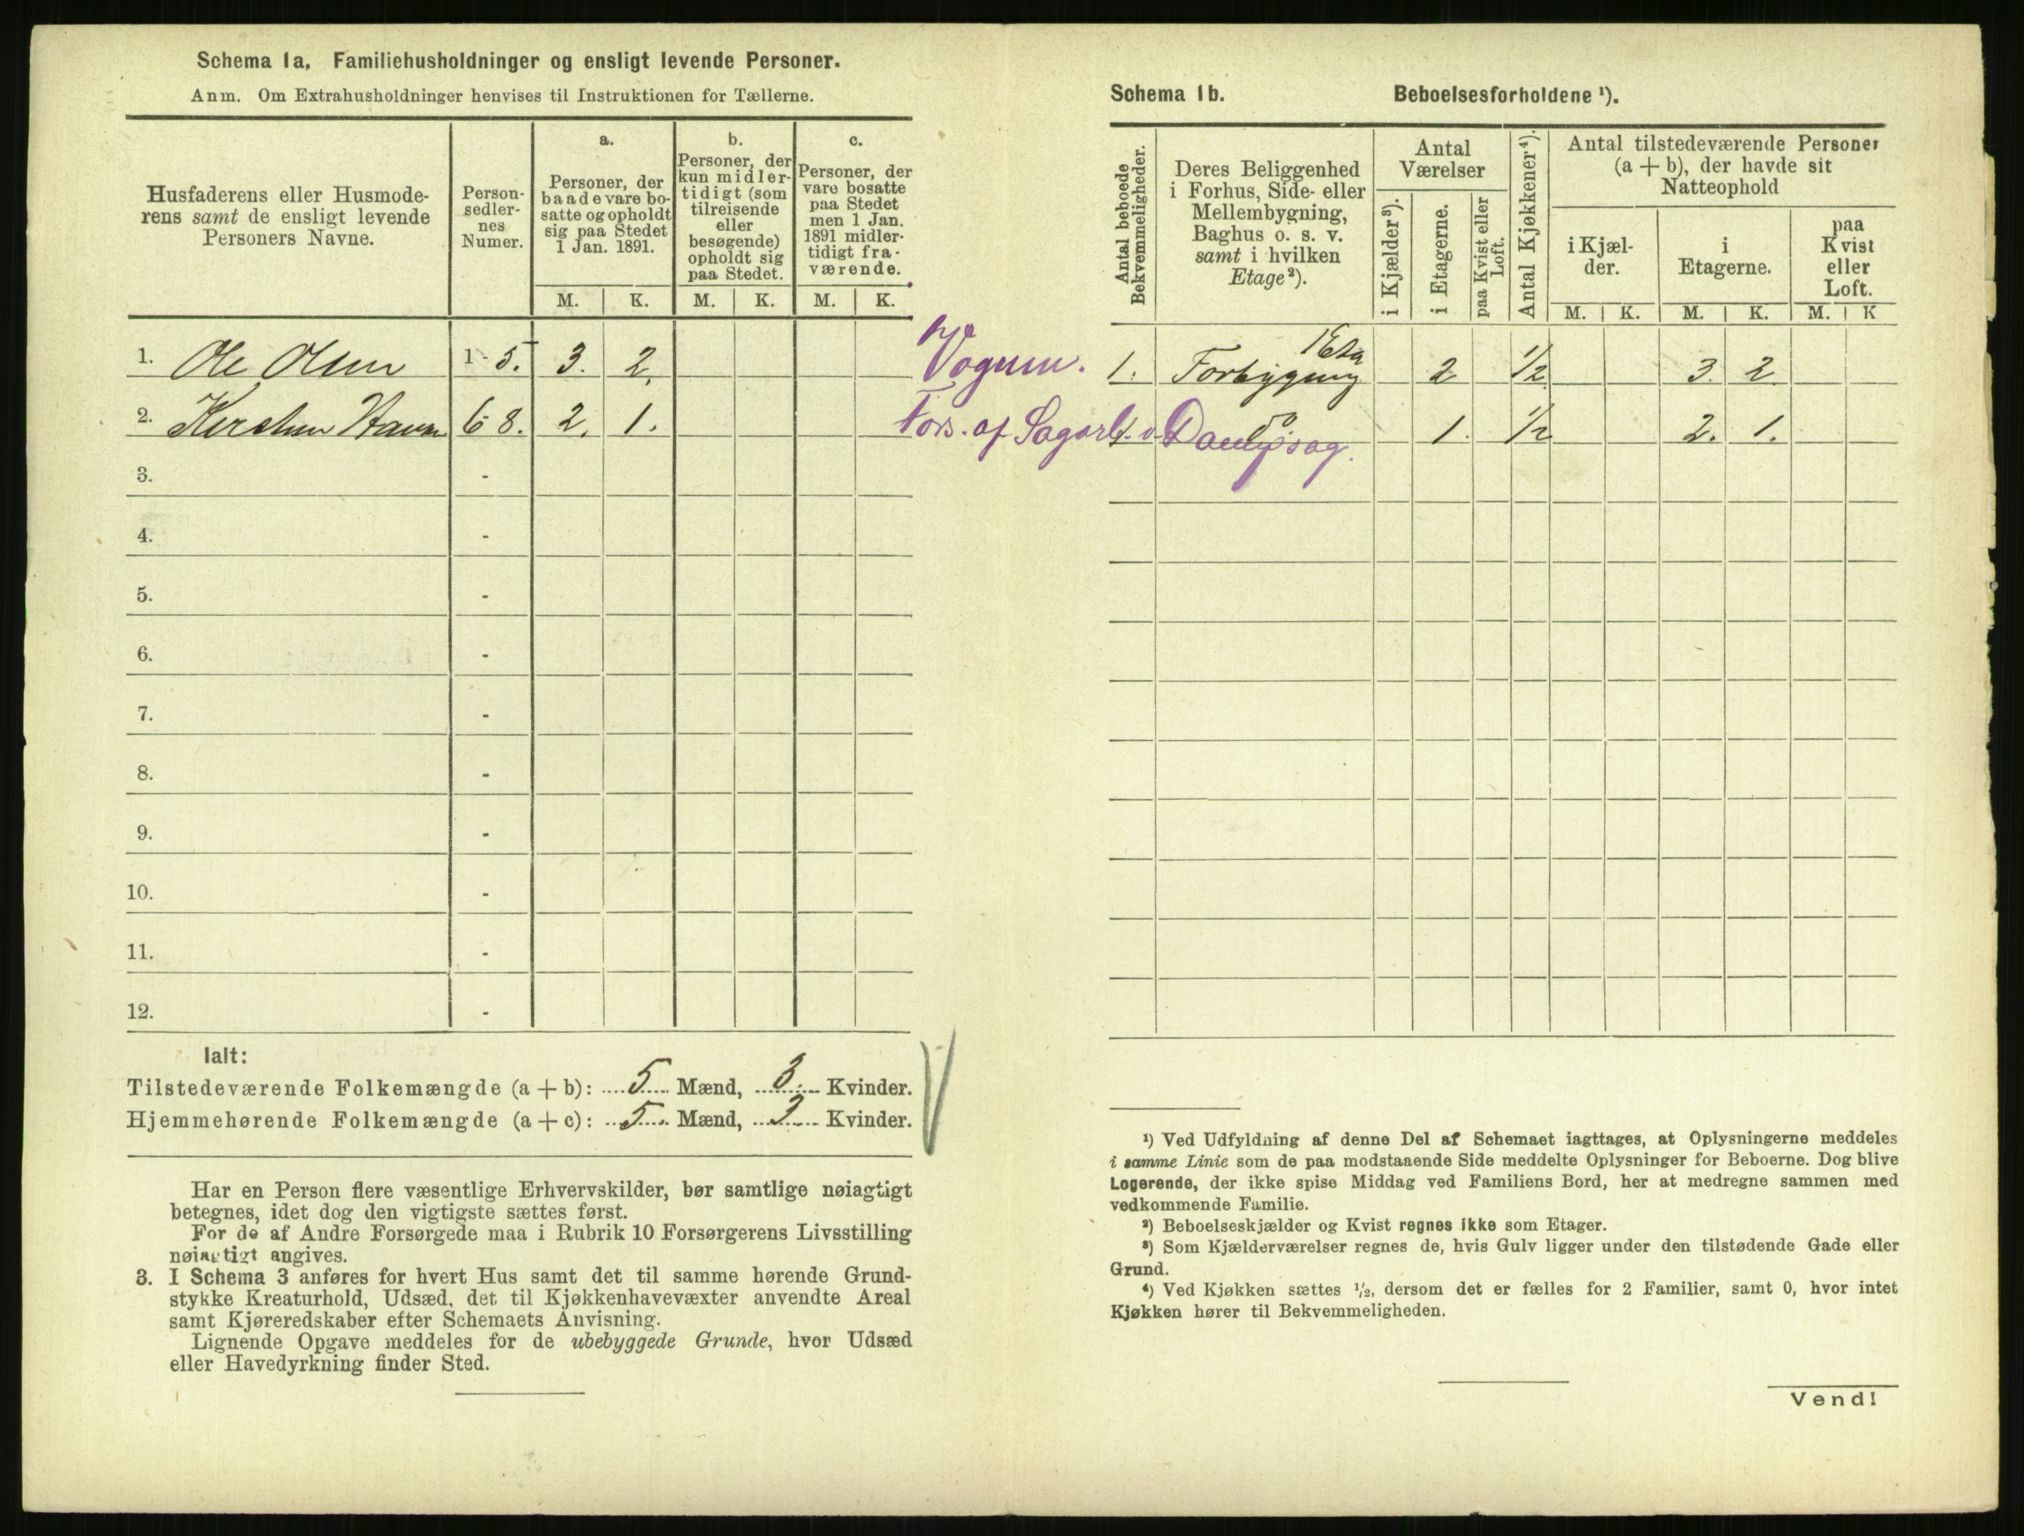 Schema 1a. Familiehusholdninger og ensligt levende Personer.
Anm. Om Extrahusholdninger henvises til Instruktionen for Tællerne.
Husfaderens eller Husmode-
rens samt de ensligt levende
Personers Navne.
Person-
sedler-
nes
Numer.
a.
Personer, der
baade vare bo-
satte og opholdt
sig paa Stedet
1 Jan. 1891.
b.
Personer, der
kun midler-
tidigt (som
tilreisende
eller
besøgende)
opholdt sig
paa Stedet.
c.
Personer, der
vare bosatte
paa Stedet
men 1 Jan.
1891 midler-
tidigt fra-
værende.
M. K. M. K. M. K.
1. Ole Olsen 1-5. 3. 2.
2. 6-8. 2. 1.
3. -
4. -
5. -
6. -
7. -
8. -
9. -
10. -
11. -
12. -
Ialt:
Tilstedeværende Folkemængde (a + b): 5 Mænd, 3. Kvinder.
Hjemmehørende Folkemængde (a + c): 5. Mænd, 3 Kvinder.
Har en Person flere væsentlige Erhvervskilder, bør samtlige nøiagtigt
betegnes, idet dog den vigtigste sættes først.
For de af Andre Forsørgede maa i Rubrik 10 Forsørgerens Livsstilling
nøiagtigt angives.
3. I Schema 3 anføres for hvert Hus samt det til samme hørende Grund-
stykke Kreaturhold, Udsæd, det til Kjøkkenhavevæxter anvendte Areal
samt Kjøreredskaber efter Schemaets Anvisning.
Lignende Opgave meddeles for de ubebyggede Grunde, hvor Udsæd
eller Havedyrkning finder Sted.
Schema 1b. Beboelsesforholdene ¹).
Antal beboede
Bekvemmeligheder.
Deres Beliggenhed
i Forhus, Side- eller
Mellembygning,
Baghus o. s. v.
samt i hvilken
Etage²).
Antal
Værelser
i Kjælder³).
i Etagerne.
paa Kvist eller
Loft.
Antal Kjøkkener⁴).
Antal tilstedeværende Personer
(a + b), der havde sit
Natteophold
i Kjæl-
der.
i
Etagerne.
paa
Kvist
eller
Loft.
M. K. M. K. M. K
1 Eta
1. Forbygning 2 1/2 3. 2
Fors. af Sagarb. v. Dampsag.
Do 1. 1/2 2. 1.
¹) Ved Udfyldning af denne Del af Schemaet iagttages, at Oplysningerne meddeles
i samme Linie som de paa modstaaende Side meddelte Oplysninger for Beboerne. Dog blive
Logerende, der ikke spise Middag ved Familiens Bord, her at medregne sammen med
vedkommende Familie.
²) Beboelseskjælder og Kvist regnes ikke som Etager.
³) Som Kjælderværelser regnes de, hvis Gulv ligger under den tilstødende Gade eller
Grund.
⁴) Ved Kjøkken sættes ½, dersom det er fælles for 2 Familier, samt 0, hvor intet
Kjøkken hører til Bekvemmeligheden.
Vend!